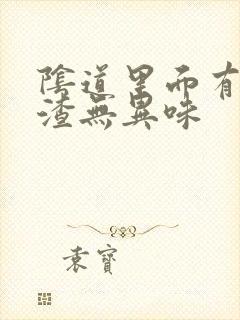 陰道里面有
渣無異味
袁寶